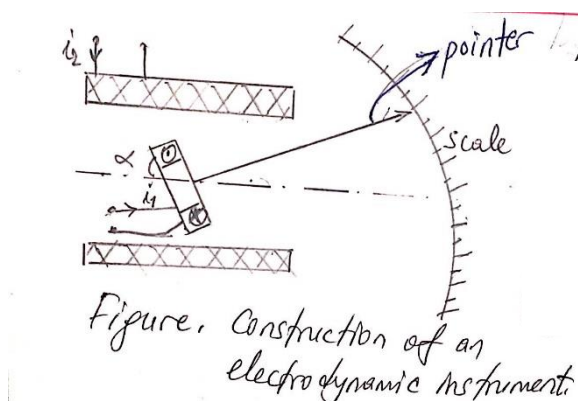 i₂
pointer
scale
α
i₁
Figure. Construction of an
electrodynamic instrument.